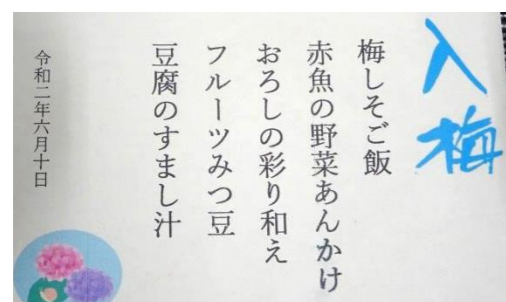 入梅
梅しそご飯
赤魚の野菜あんかけ
おろしの彩り和え
フルーツみつ豆
豆腐のすまし汁
令和二年六月十日